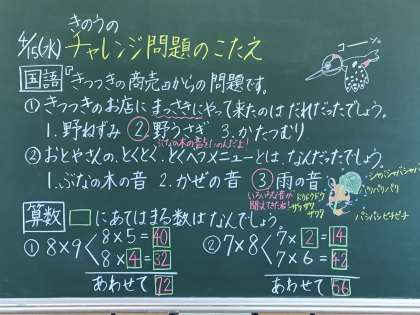 きのうの
4/15(水) チャレンジ問題のこたえ
コーン
国語 『きつつきの商売』からの問題です。
① きつつきのお店にまっさきにやって来たのはだれだったでしょう。
1.野ねずみ ②野うさぎ 3.かたつむり
ぶなの木の音をきいたんだよ!
② おとやさんの、とくとく、とくべつメニューとは、なんだったでしょう。
1.ぶなの木の音 2.かぜの音 ③雨の音
いろいろな音が
聞こえてきたね!
シャバシャバシャバ
パリパリ
ドウドウ
ザワザワ
パシパシピチピチ
算数 □にあてはまる数はなんでしょう。
① 8×9 8×5=40
8×4=32
あわせて 72
② 7×8 7×2=14
7×6=42
あわせて 56